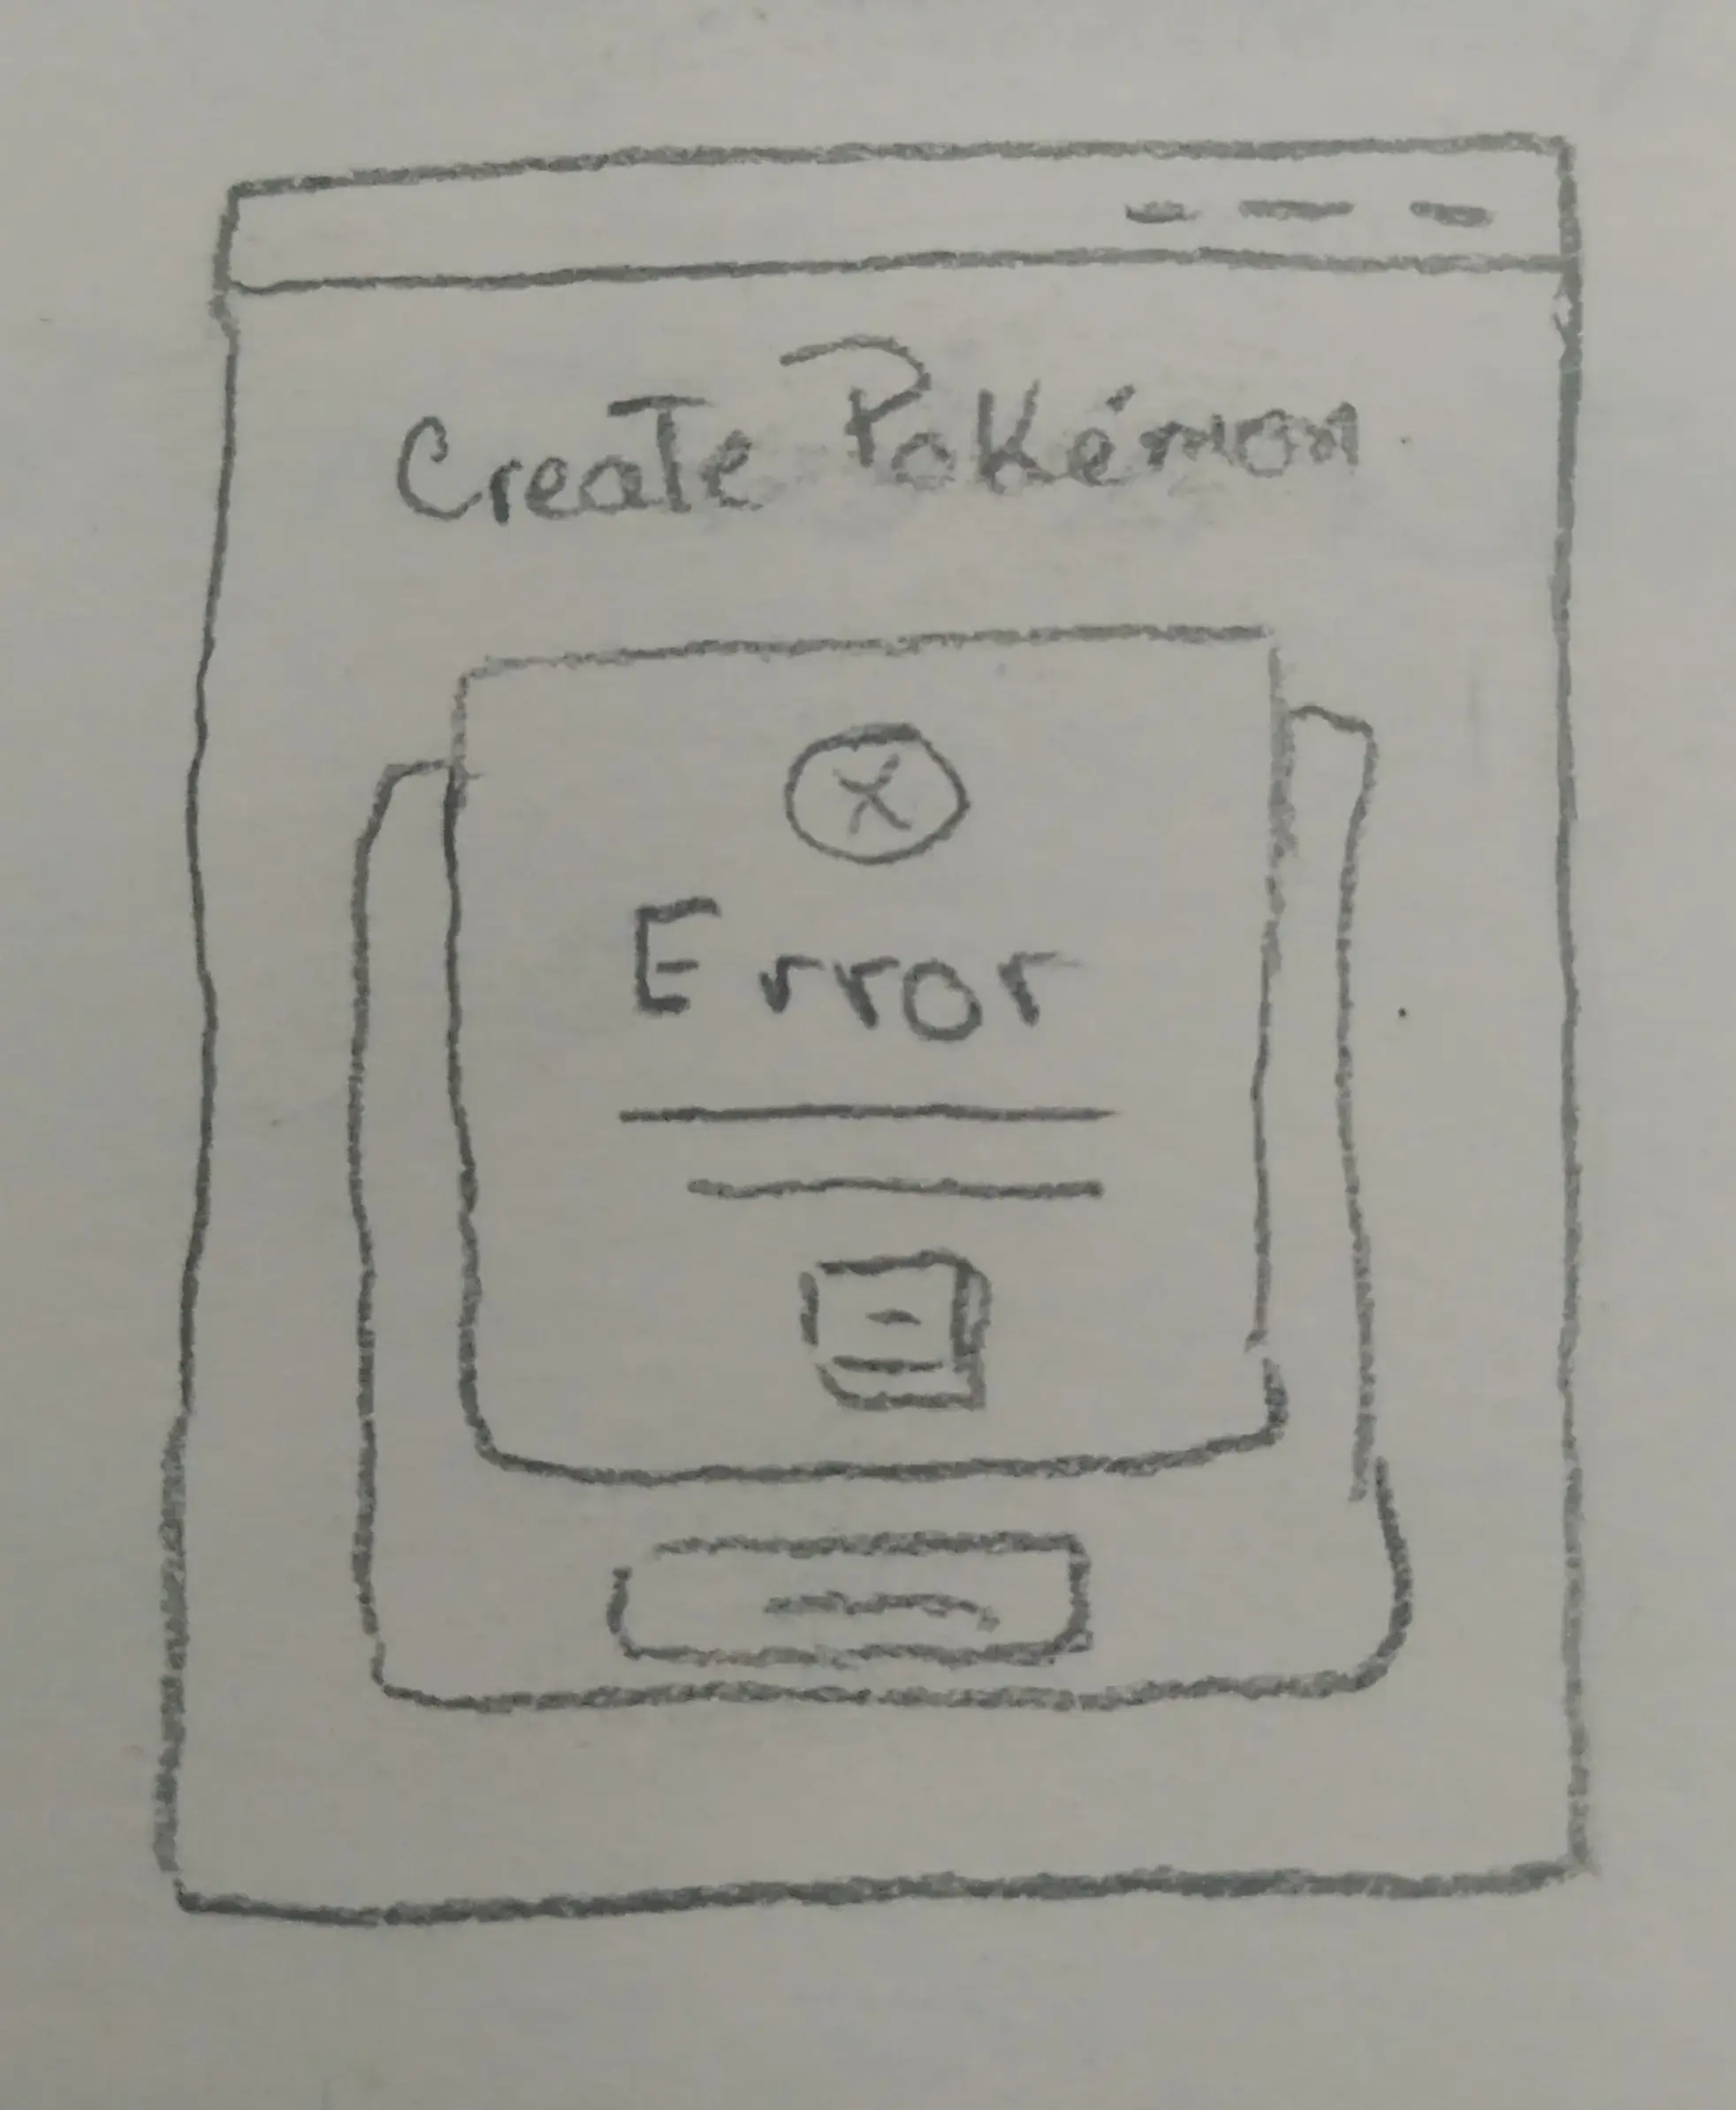 Create Pokémon
X
Error